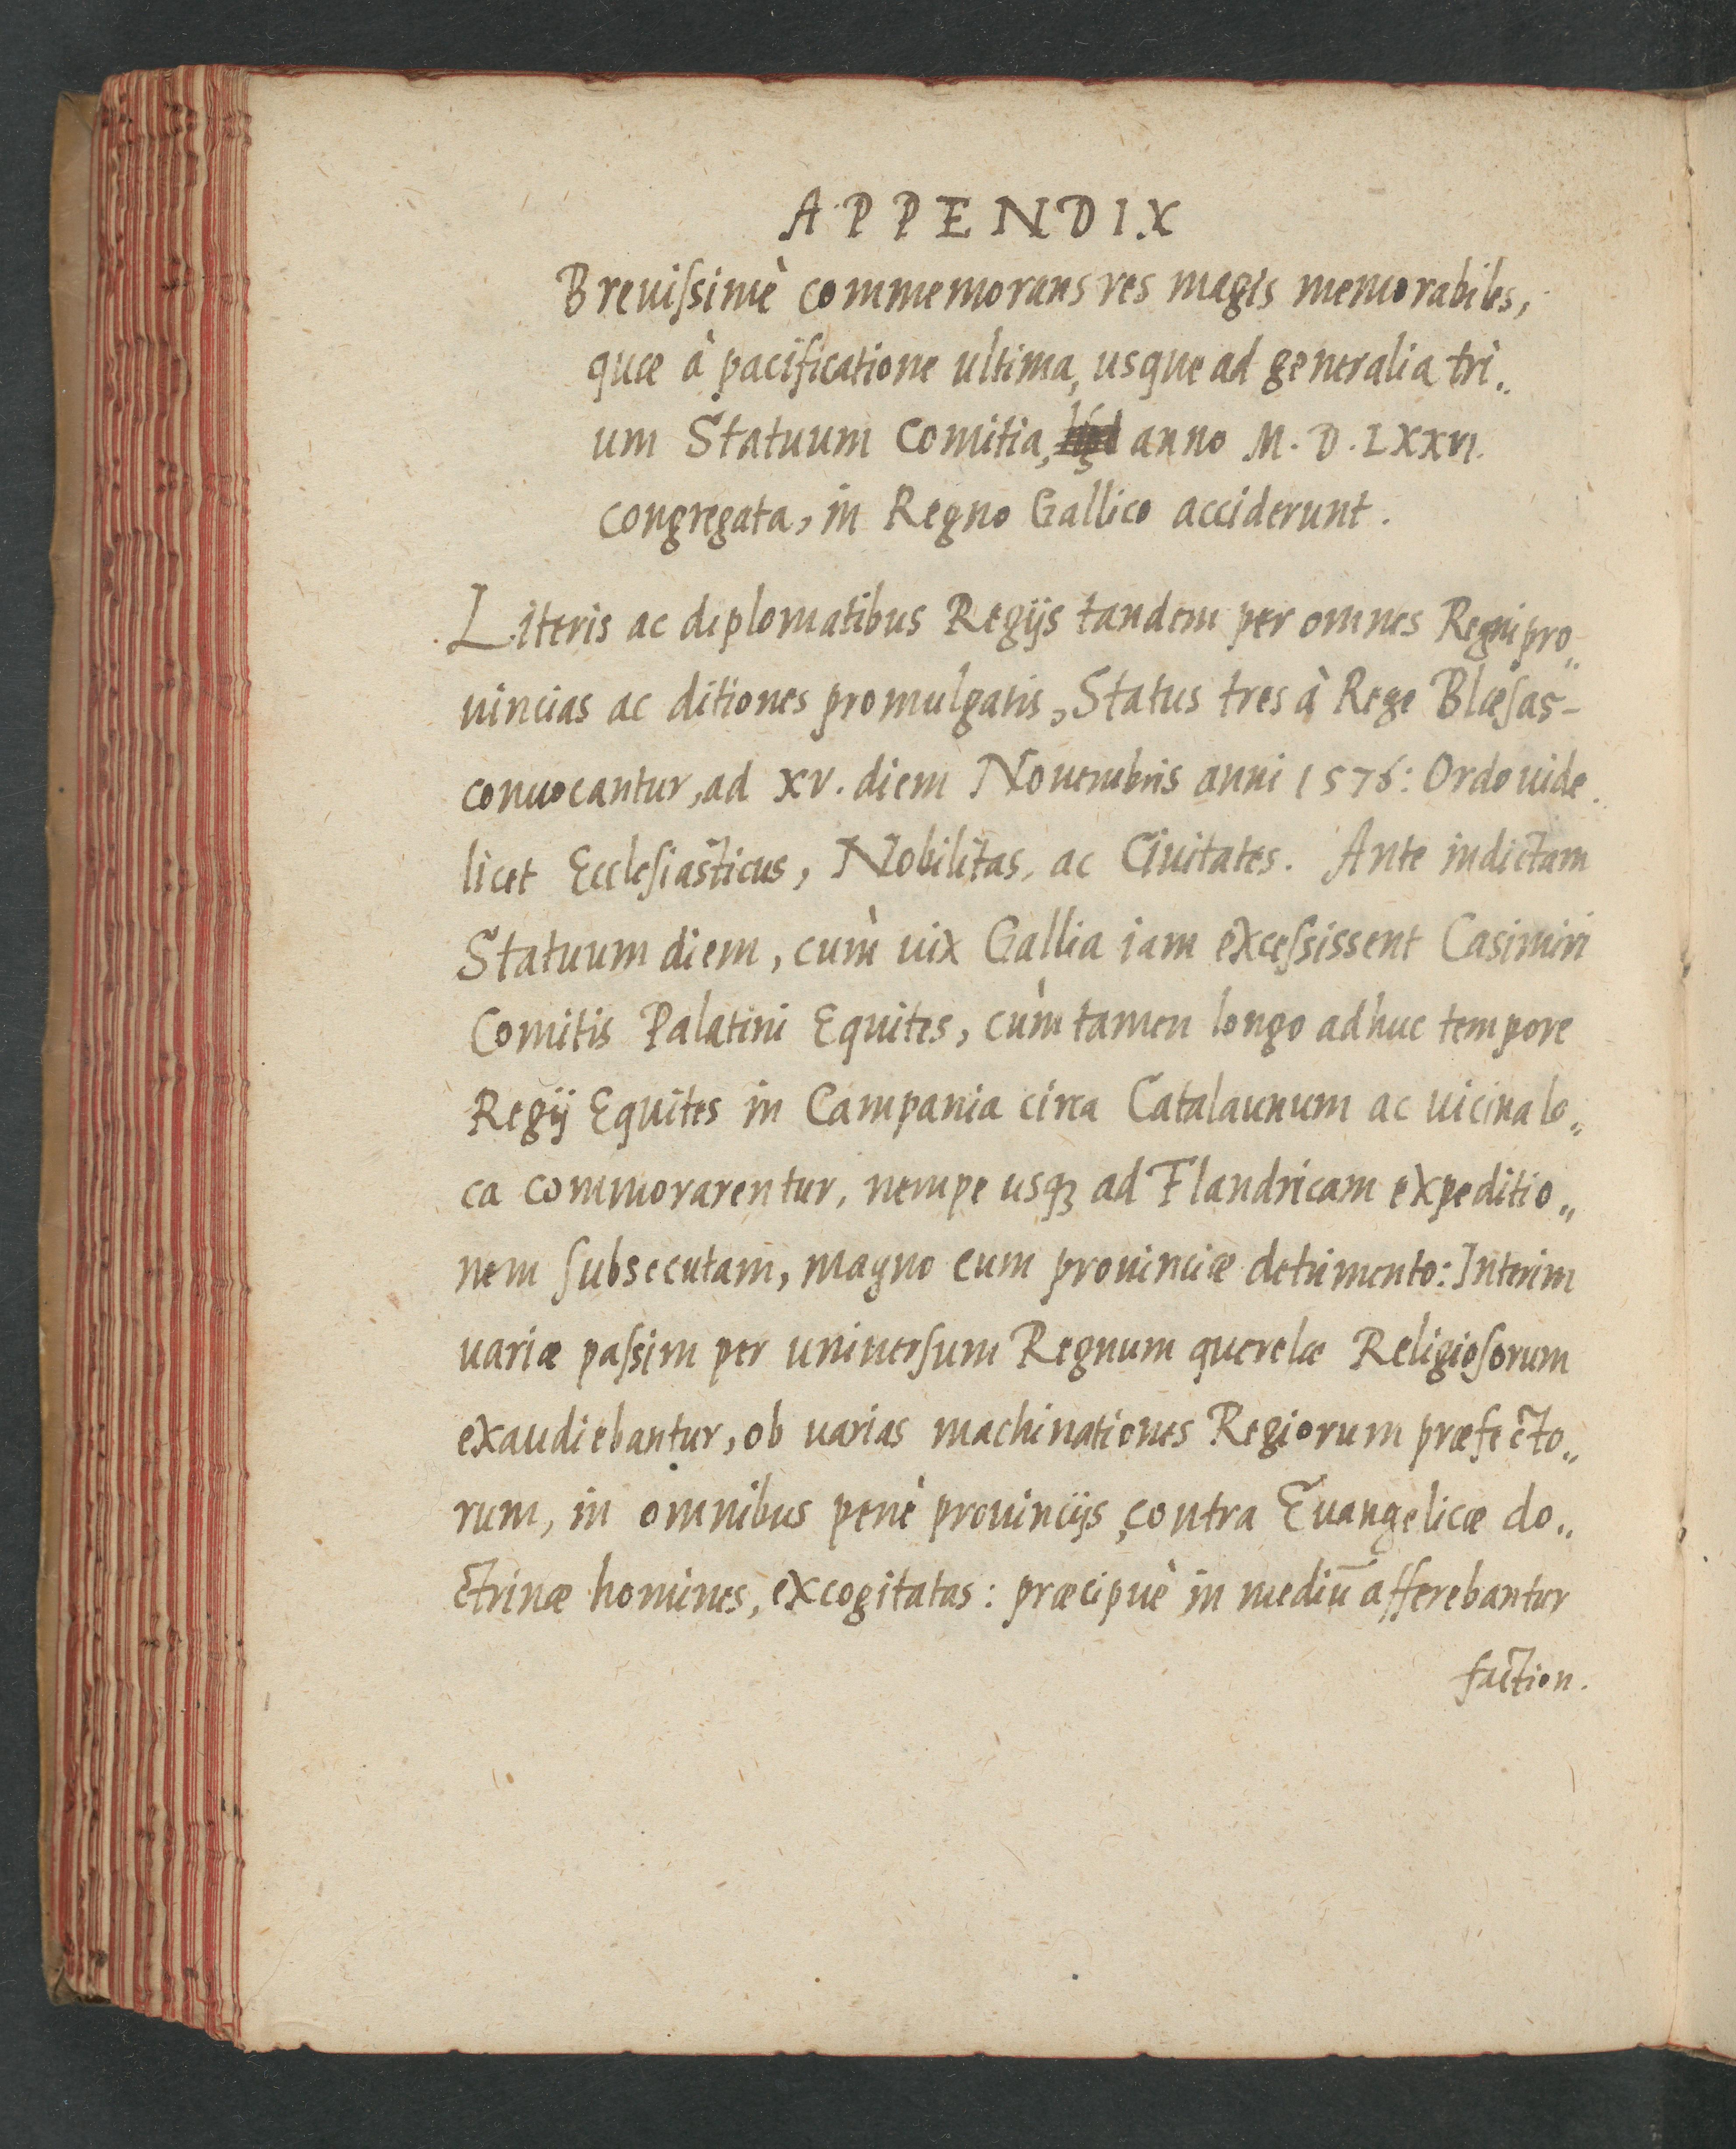 APPENDIX
Breuissimè commemorans res magis memorabiles,
quæ à pacificatione ultima, usque ad generalia tri„
um Statuum Comitia, anno M. D. LXXVI.
congregata, in Regno Gallico acciderunt.
Literis ac diplomatibus Regijs tandem per omnes Regni pro„
uincias ac ditiones promulgatis, Status tres à Rege Blæsas-
conuocantur, ad XV. diem Nouembris anni 1576: Ordo uide„
licet Ecclesiasticus, Nobilitas, ac Ciuitates. Ante indictam
Statuum diem, cum̀ uix Gallia iam excessissent Casimiri
Comitis Palatini Equites, cùm tamen longo adhuc tempore
Regij Equites in Campania circa Catalaunum ac uicina lo„
ca commorarentur, nempe usqꝫ ad Flandricam expeditio„
nem subsecutam, magno cum prouinciæ detrimento: Interim
uariæ passim per uniuersum Regnum querelæ Religiosorum
exaudiebantur, ob uarias machinationes Regiorum præfecto„
rum, in omnibus penè prouincijs contra Euangelicæ do„
ctrinæ homines, excogitatas: præcipuè in mediū afferebantur
faction.